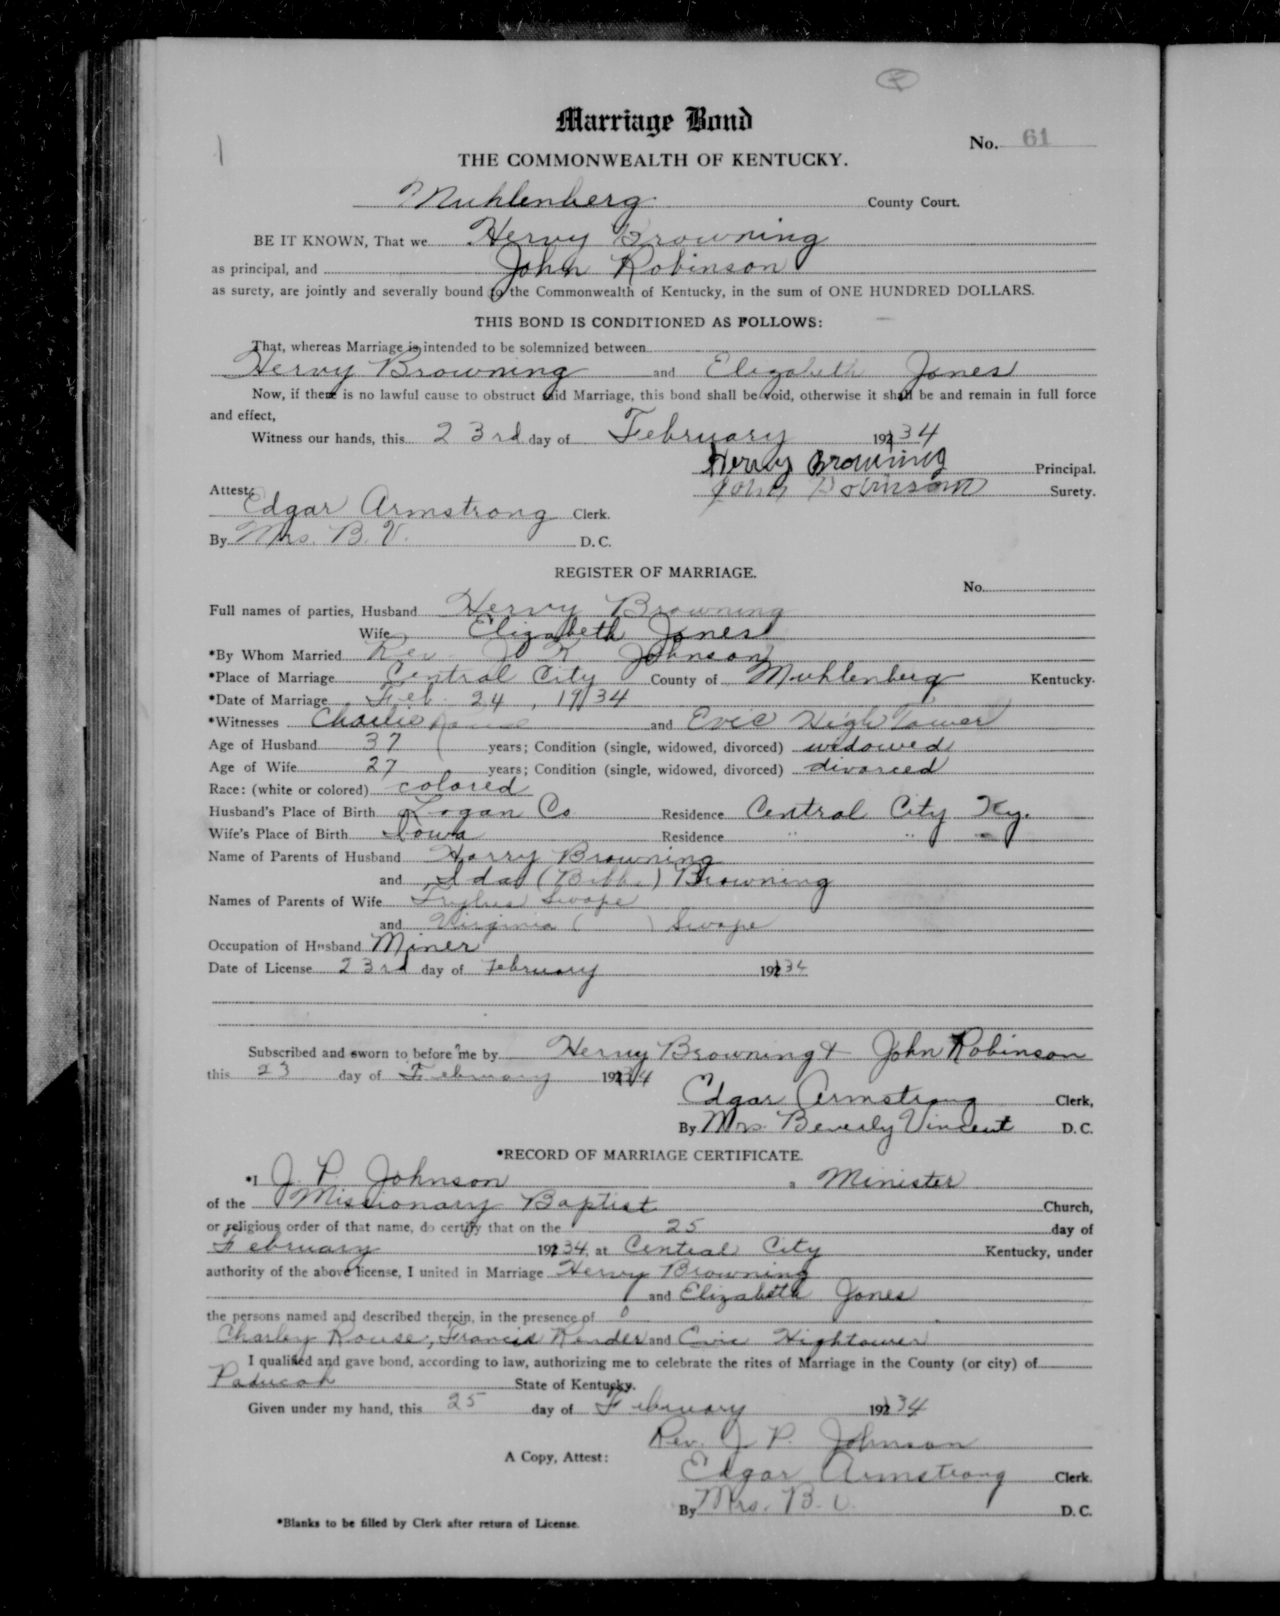 Marriage Bond
No. 61
THE COMMONWEALTH OF KENTUCKY.
Muhlenberg County Court.
BE IT KNOWN, That we Hervy Browning
as principal, and John Robinson
as surety, are jointly and severally bound to the Commonwealth of Kentucky, in the sum of ONE HUNDRED DOLLARS.
THIS BOND IS CONDITIONED AS FOLLOWS:
That, whereas Marriage is intended to be solemnized between
Hervy Browning and Elizabeth Jones
Now, if there is no lawful cause to obstruct said Marriage, this bond shall be void, otherwise it shall be and remain in full force
and effect,
Witness our hands, this 23rd day of February 1934
Hervy Browning Principal.
John Robinson Surety.
Attest:
Edgar Armstrong Clerk.
By Mrs. B. V. D. C.
REGISTER OF MARRIAGE.
No.
Full names of parties, Husband Hervy Browning
Wife Elizabeth Jones
*By Whom Married Rev. Johnson
*Place of Marriage Central City County of Muhlenberg Kentucky.
*Date of Marriage Feb. 24, 1934
*Witnesses Charlie and Evie High Tower
Age of Husband 37 years; Condition (single, widowed, divorced) widowed
Age of Wife 27 years; Condition (single, widowed, divorced) divorced
Race: (white or colored) colored
Husband's Place of Birth Logan Co Residence Central City Ky.
Wife's Place of Birth Iowa Residence " " "
Name of Parents of Husband Harry Browning
and Ida (Bibbs) Browning
Names of Parents of Wife Swope
and Virginia ( ) Swope
Occupation of Husband Miner
Date of License 23rd day of February 1934
Subscribed and sworn to before me by Hervy Browning & John Robinson
this 23 day of February 1934
Edgar Armstrong Clerk,
By Mrs. Beverly Vincent D. C.
*RECORD OF MARRIAGE CERTIFICATE.
*I J. P. Johnson a Minister
of the Missionary Baptist Church,
or religious order of that name, do certify that on the 25 day of
February 1934, at Central City Kentucky, under
authority of the above license, I united in Marriage Hervy Browning
and Elizabeth Jones
the persons named and described therein, in the presence of
Charley Rouse, Francis Render and Evie Hightower
I qualified and gave bond, according to law, authorizing me to celebrate the rites of Marriage in the County (or city) of
Paducah State of Kentucky.
Given under my hand, this 25 day of February 1934
Rev. J. P. Johnson
A Copy, Attest:
Edgar Armstrong Clerk.
By Mrs. B. V. D. C.
*Blanks to be filled by Clerk after return of License.